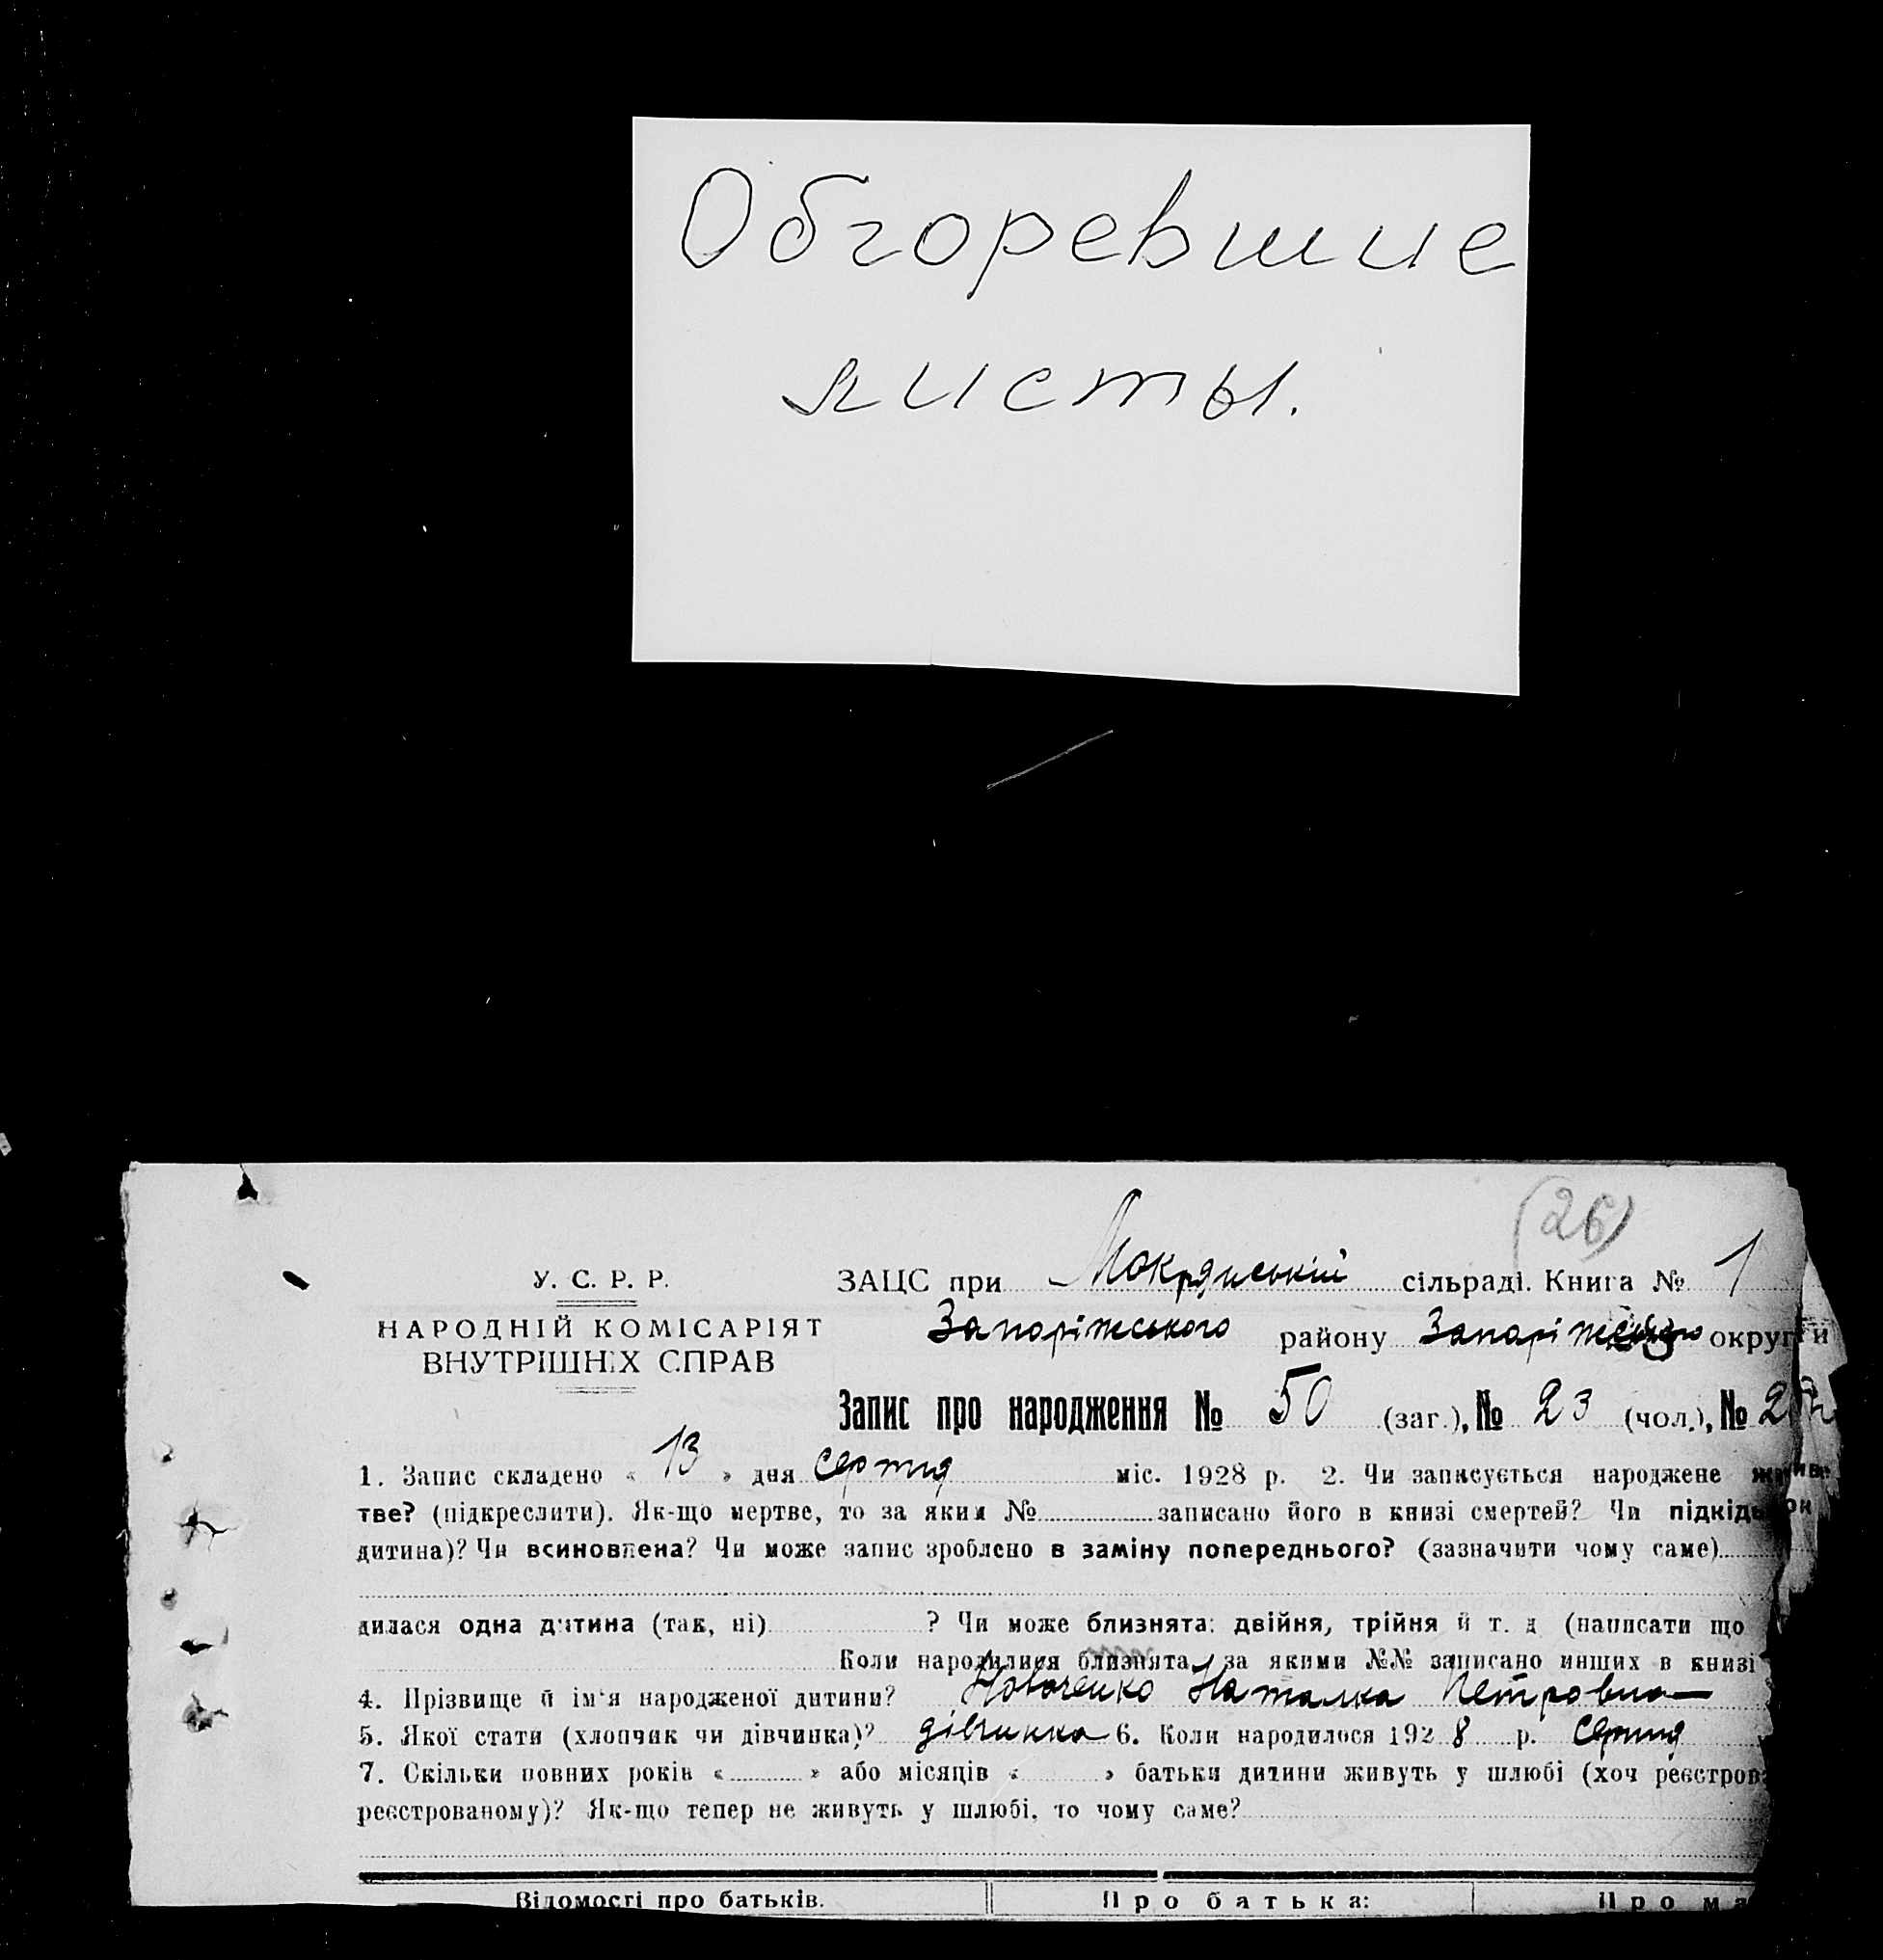 Обгоревшие
листы.
(26)
У. С. Р. Р.
ЗАЦС при Мокрянській сільраді. Книга № 1
НАРОДНІЙ КОМІСАРІЯТ
ВНУТРІШНІХ СПРАВ
Запоріжського району Запоріжського округи
Запис про народження № 50 (заг.), № 23 (чол.), №
1. Запис складено « 13 » дня серпня міс. 1928 р. 2. Чи записується народжене
тве? (підкреслити). Як-що мертве, то за яким № записано його в книзі смертей? Чи підкідьок
дитина)? Чи всиновлена? Чи може запис зроблено в заміну попереднього? (зазначити чому саме)
дилася одна дитина (так, ні) ? Чи може близнята: двійня, трійня й т. д (написати що
Коли народилися близнята, за якими №№ записано инших в книзі
4. Прізвище й ім'я народженої дитини? Наталка Петровна
5. Якої стати (хлопчик чи дівчинка)? дівчинка 6. Коли народилося 1928 р. Серпня
7. Скільки повних років « » або місяців « » батьки дитини живуть у шлюбі (хоч реєстров
реєстрованому)? Як-що тепер не живуть у шлюбі, то чому саме?
Відомості про батьків. Про батька: Про ма